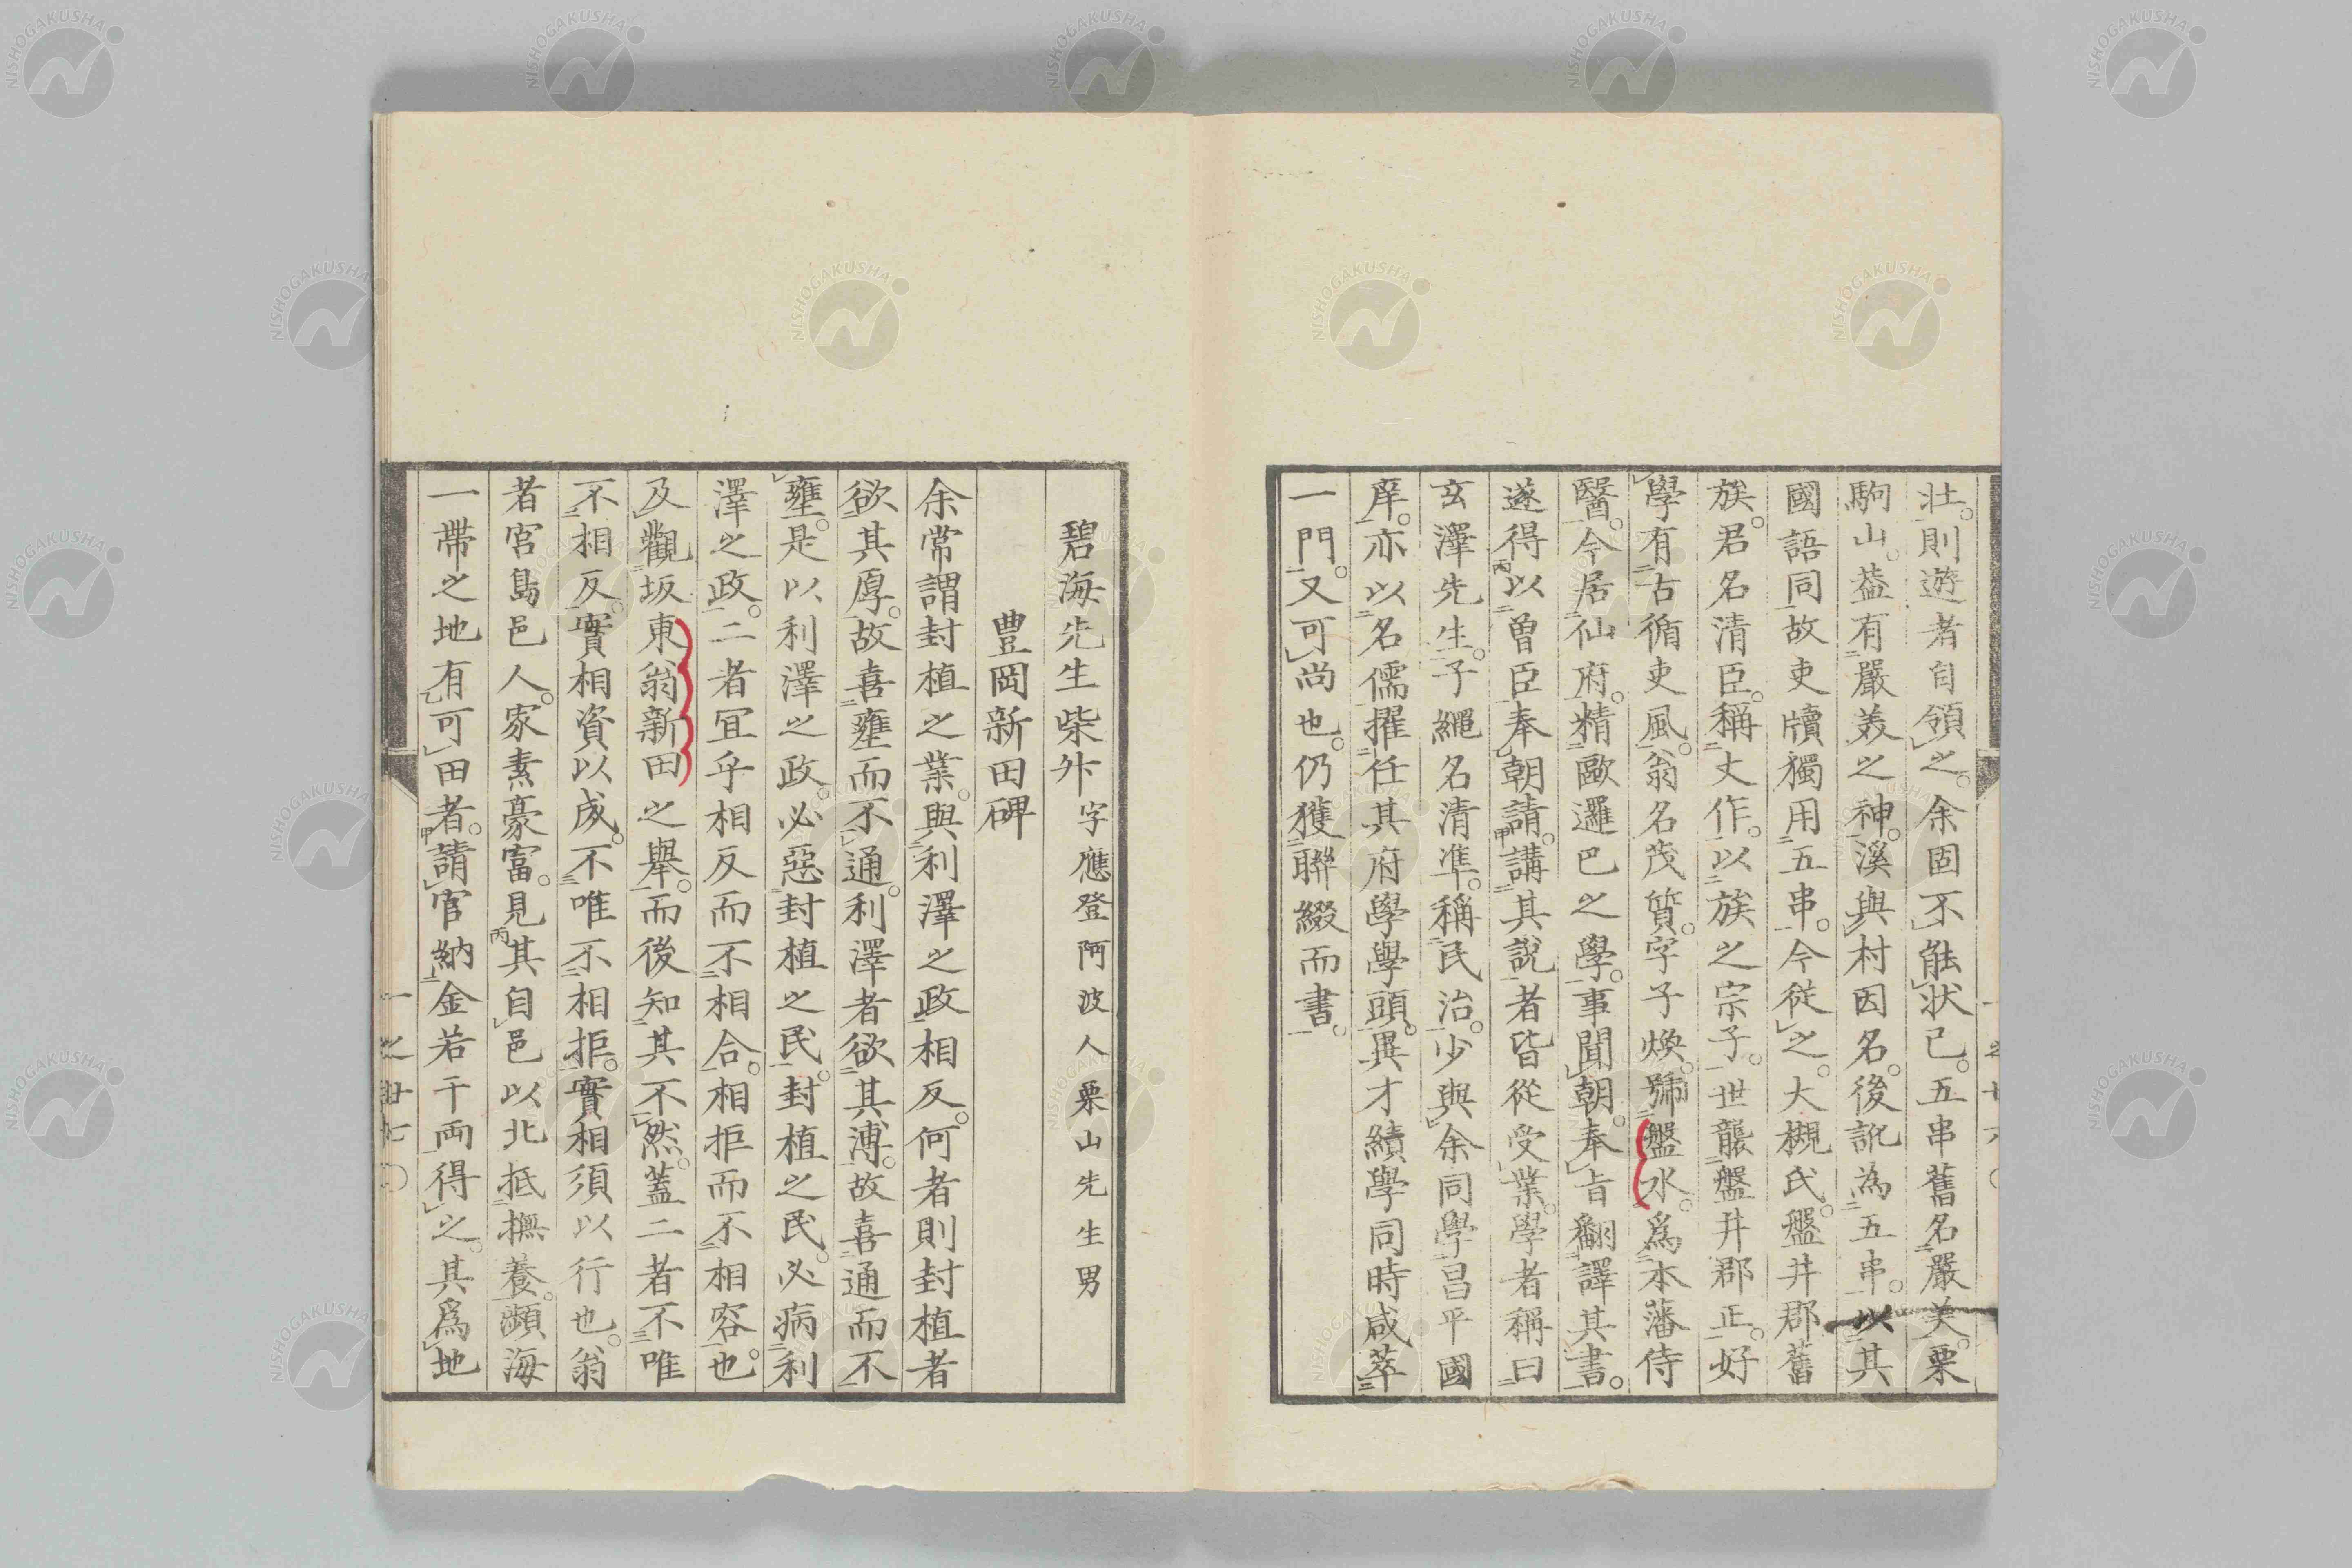 壮。則遊者自領之。余固不能状已。五串舊名嚴美。栗
駒山。葢有嚴美之神。溪與村因名。後訛為五串。以其
國語同故吏牘獨用五串。今從之。大槻氏。盤井郡舊
族。君名清臣。稱丈作。以族之宗子。世襲盤井郡正。好
學有古循吏風。翁名茂質。字子煥。號盤水。爲本藩侍
醫。今居仙府。精歐邏巴之學。事聞朝。奉旨翻譯其書。
遂得以曽臣奉朝請。講其說者皆從受業。學者稱曰
玄澤先生。子繩名清凖。稱民治。少與余同學昌平國
庠。亦以名儒擢任其府學學頭。異才績學同時咸萃
一門。又可尚也。仍獲聯綴而書。
碧海先生柴升字應登阿波人栗山先生男
豊岡新田碑
余常謂封植之業。與利澤之政相反。何者則封植者
欲其厚。故喜壅而不通。利澤者欲其溥。故喜通而不
壅。是以利澤之政。必惡封植之民。封植之民。必病利
澤之政。二者冝乎相反而不相合。相拒而不相容也。
及觀坂東翁新田之舉。而後知其不然。蓋二者不唯
不相反。實相資以成。不唯不相拒。實相須以行也。翁
者宮島邑人。家素豪富。見其自邑以北抵撫養。瀕海
一帶之地有可田者。請官納金若干両得之。其爲地
一之廿七〇